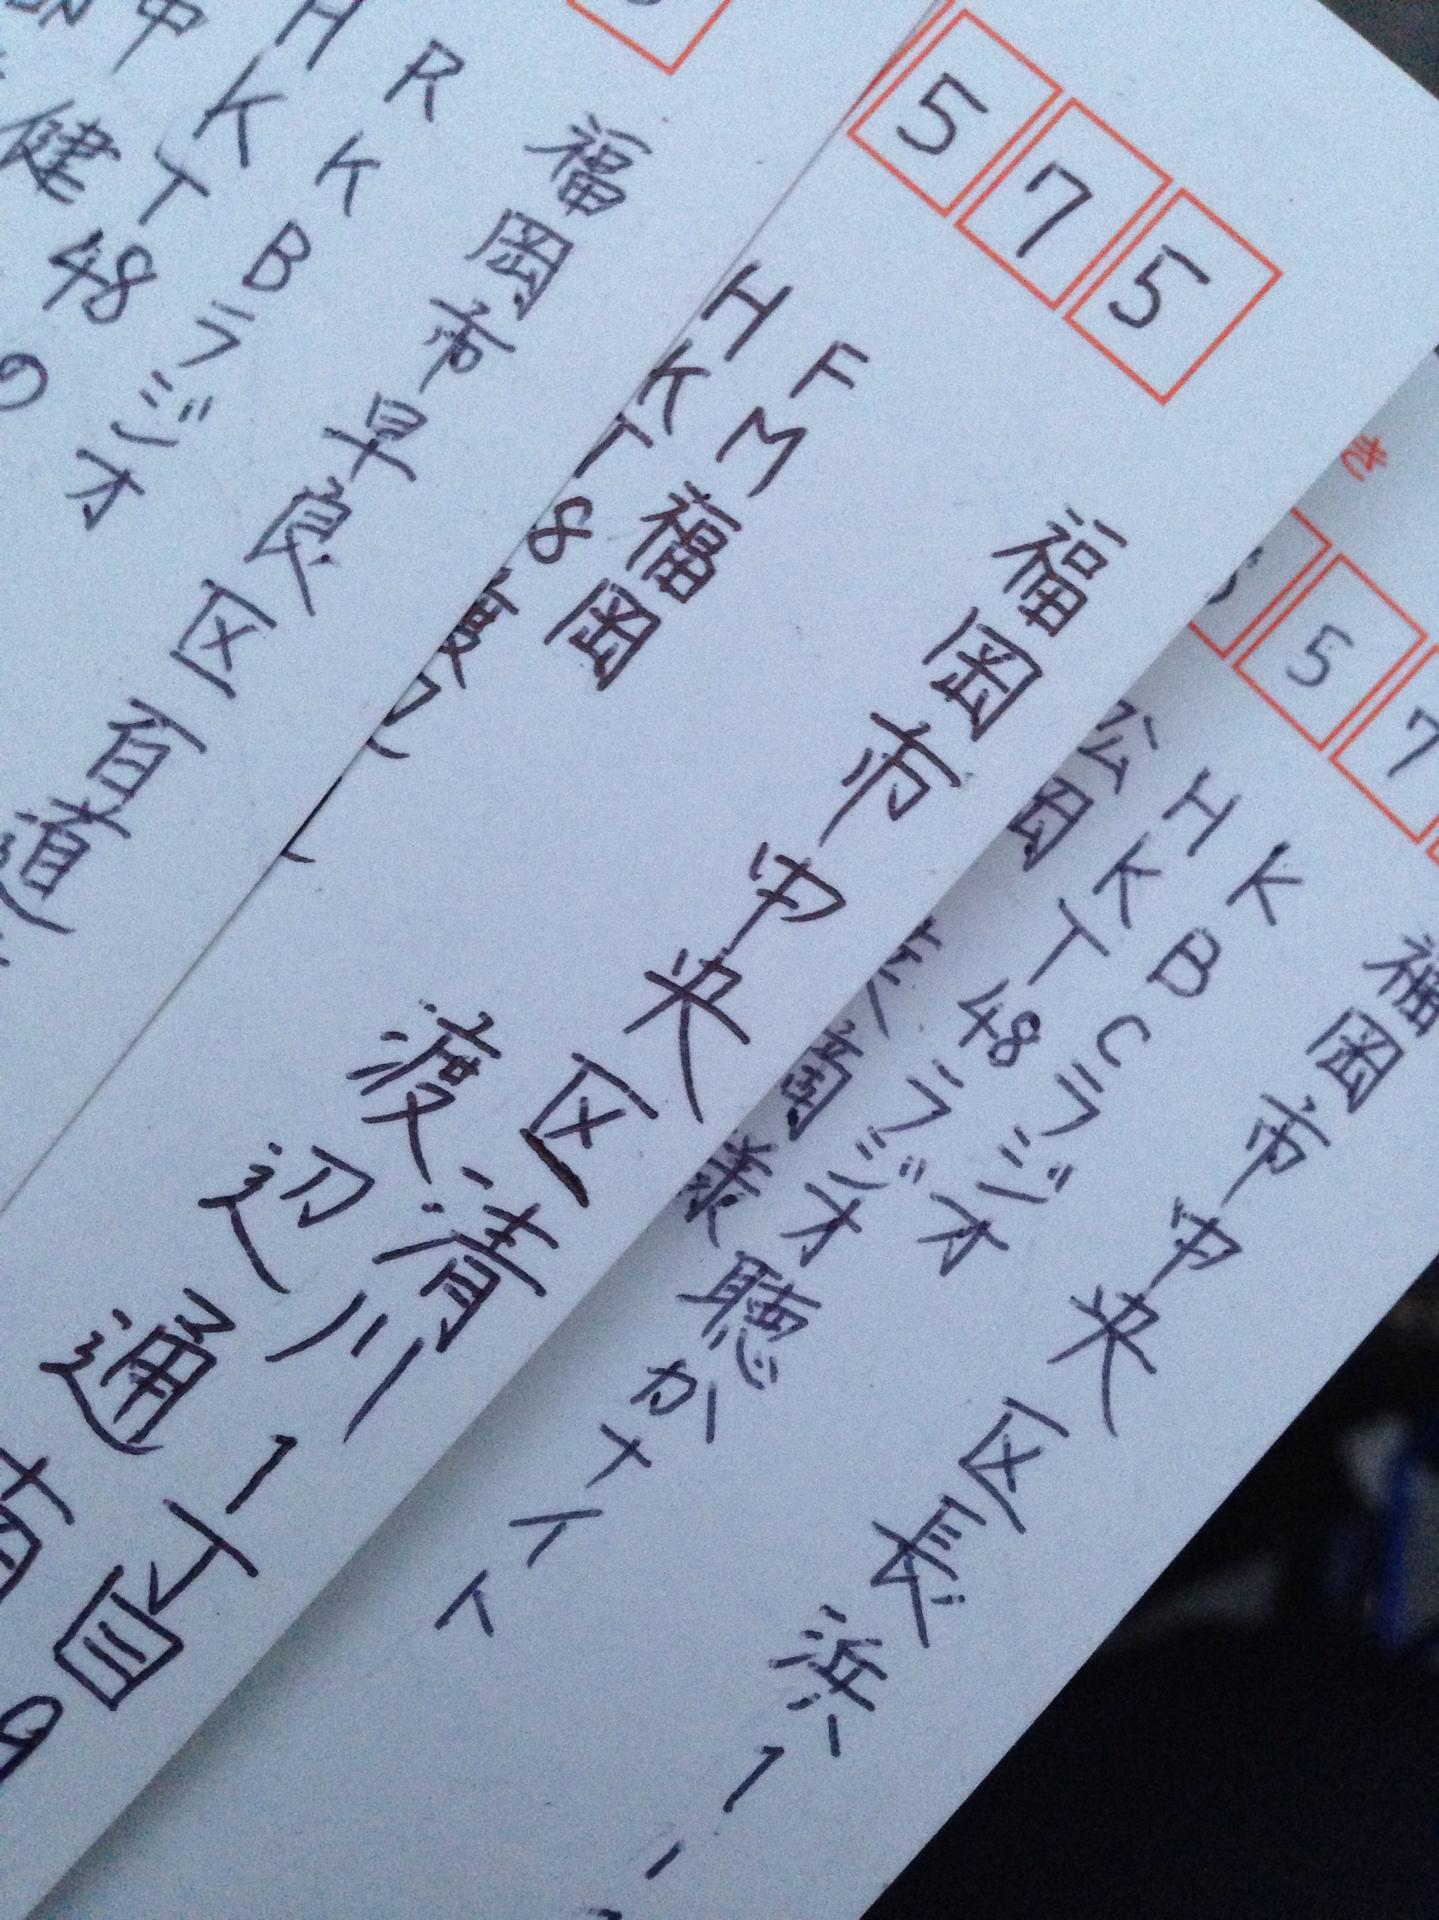 き
5 7
福岡市中央区長浜1-
KBCラジオ
HKT48ラジオ聴かナイト
公園
様
575
福岡市中央区清川1丁目
渡辺通
FM福岡
HKT
8
福岡市早良区百道
RKBラジオ
HKT48の
中健